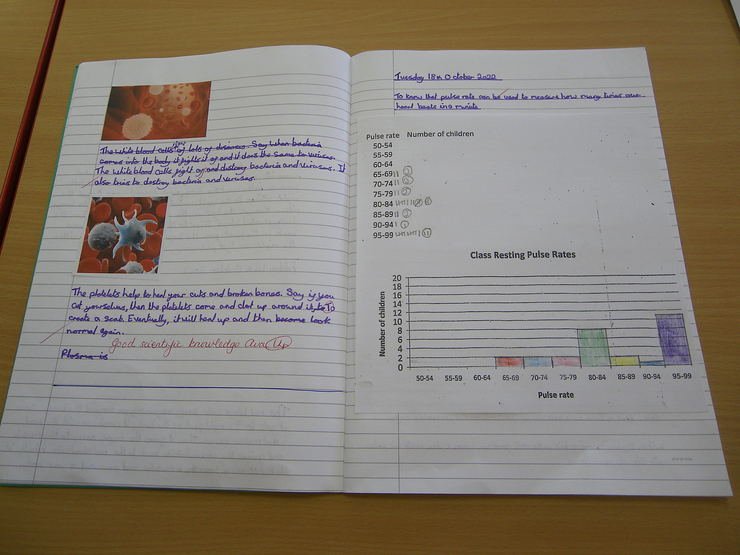 The white blood cells fight of lots of diseases. Say when bacteria
comes into the body it fights it of and it does the same to viruses.
The white blood cells fight of and destroy bacteria and viruses. It
also tries to destroy bacteria and viruses.
The platelets help to heal your cuts and broken bones. Say if you
cut yourselves, then the platelets come and clot up around it, to
create a scab. Eventually, it will heal up and then become look
normal again.
Good scientific knowledge
Plasma is
Tuesday 18th October 2022
To know that pulse rate can be used to measure how many times our
heart beats in a minute
Pulse rate Number of children
50-54
55-59
60-64
65-69 2
70-74 2
75-79 2
80-84 8
85-89 2
90-94 1
95-99 11
Class Resting Pulse Rates
Number of children
20
18
16
14
12
10
8
6
4
2
0
50-54 55-59 60-64 65-69 70-74 75-79 80-84 85-89 90-94 95-99
Pulse rate